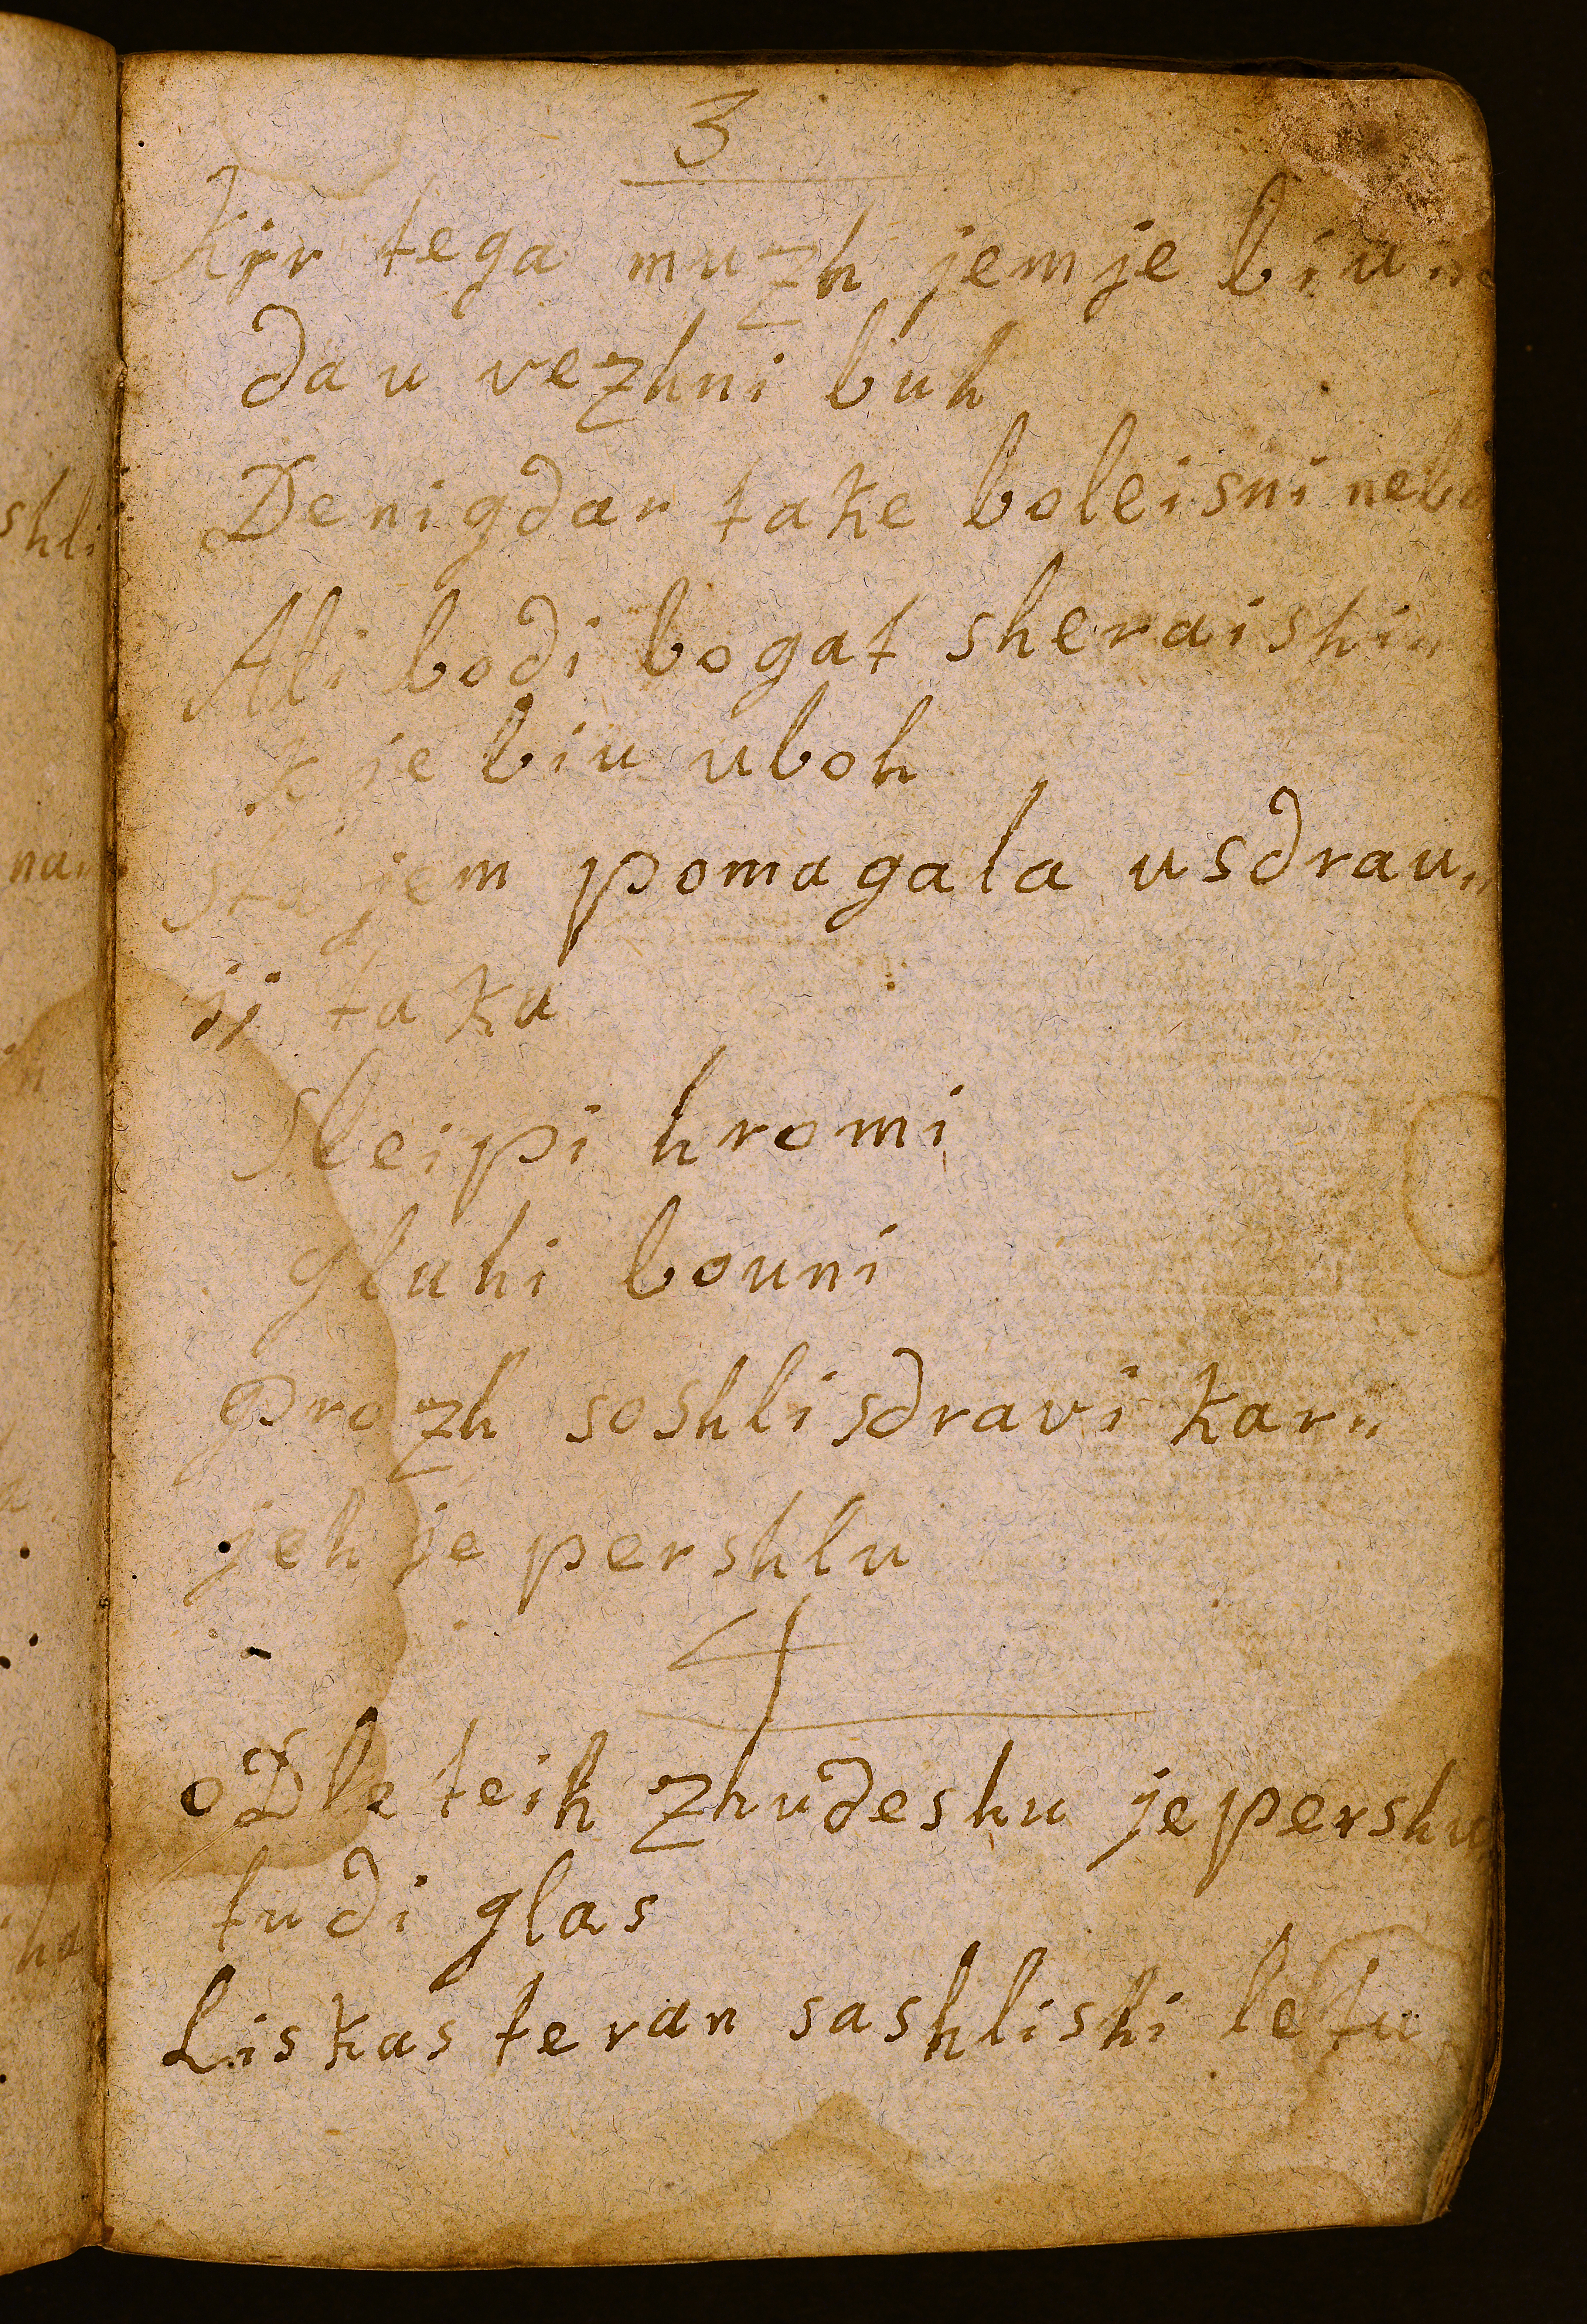 3
Kjr tega muzh jem je biu
dau vezhni buh
De nigdar take boleisni nebo
Ali bodi bogat sheraishi„
k je biu uboh
Sta jem pomagala usdrau„
ji taku
Sleipi hromi
gluhi bouni
Prozh soshli sdravi kar„
jeh je pershlu
4
oDle teih Zhudeshu je pershu
tudi glas
Liskas teran sashlishi le tu